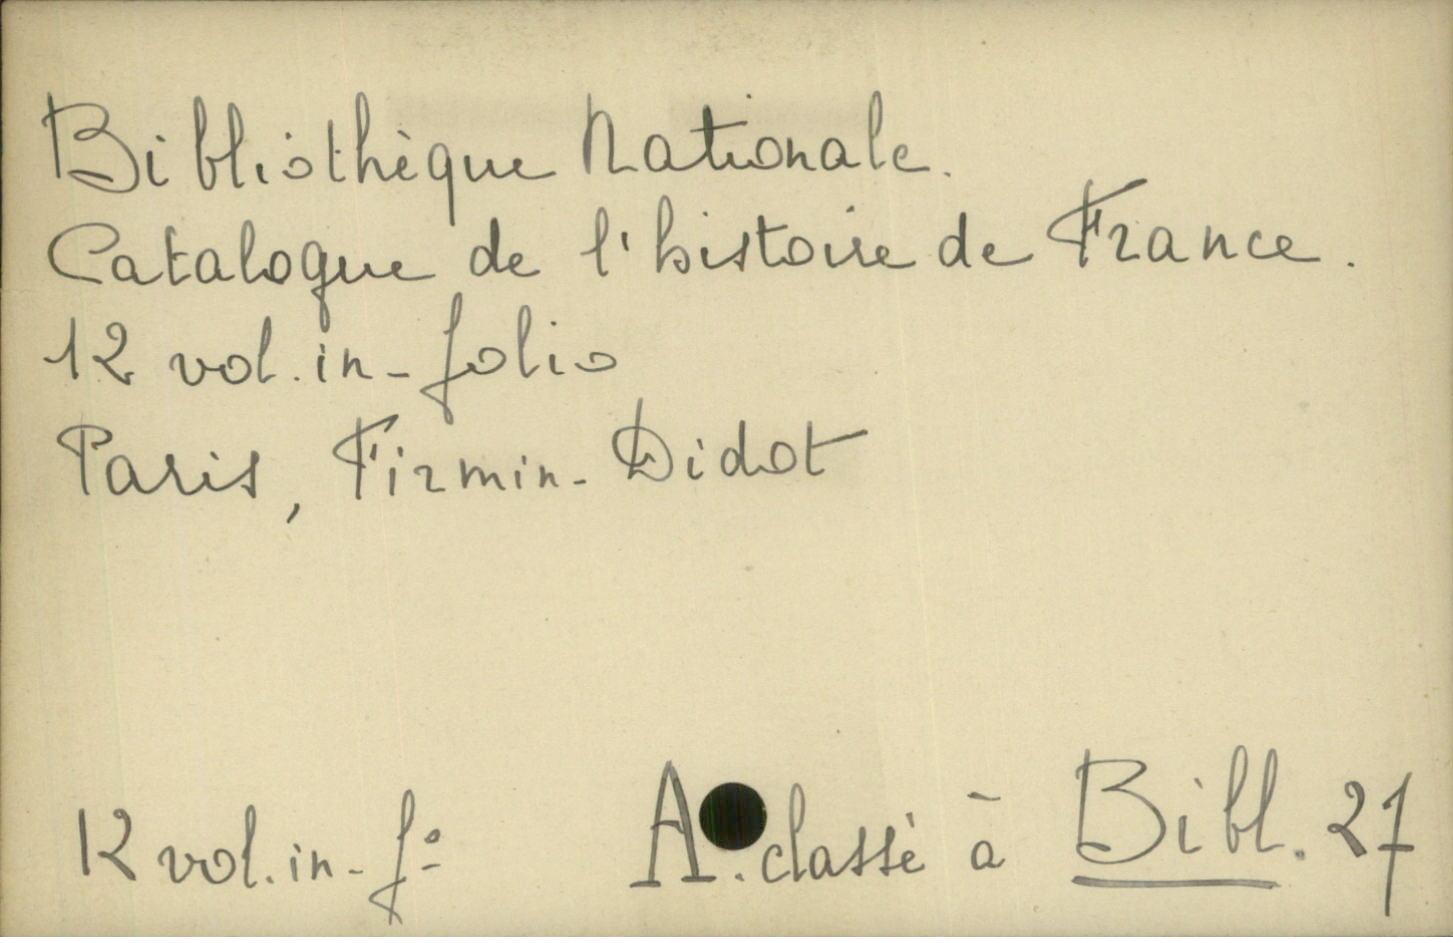 Bibliothèque Nationale.
Catalogue de l'histoire de France.
12 vol. in-folio
Paris, Firmin-Didot
12 vol. in-fº A. classé à Bibl. 27